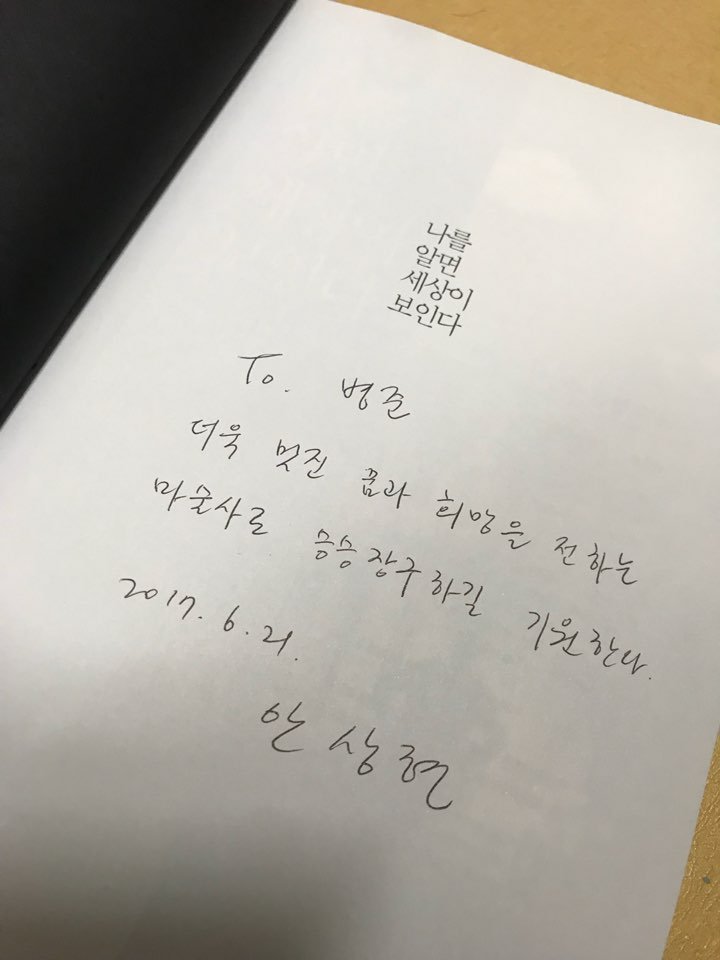 나를
알면
세상이
보인다
To. 병준
더욱 멋진 꿈과 희망을 전하는
마술사로 승승장구하길 기원한다.
2017. 6. 21.
안상현